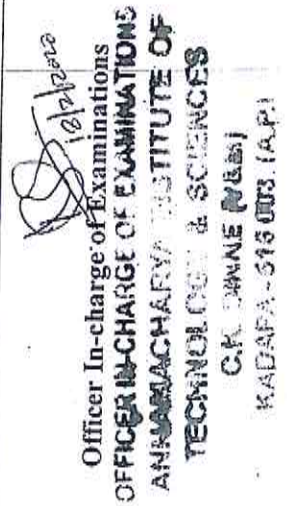 18/2/2022
Officer In-charge of Examinations
OFFICER IN-CHARGE OF EXAMINATIONS
ANNAMACHARYA INSTITUTE OF
TECHNOLOGY & SCIENCES
C.K. DINNE
KADAPA - 516 003. (A.P.)